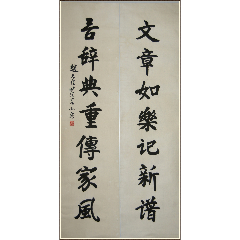 文章如樂記新谱
言辭典重傳家風